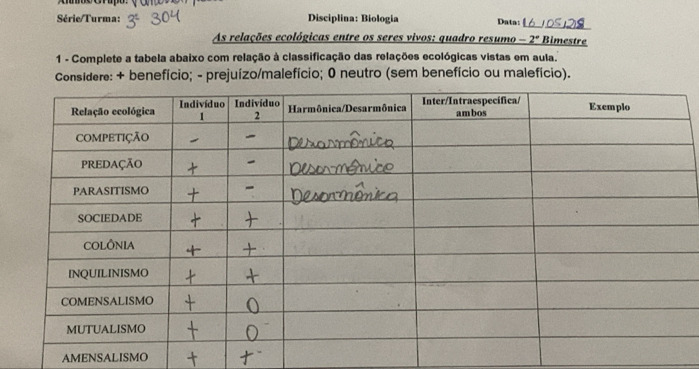 Série/Turma: 3ª 304 Disciplina: Biologia Data: 16/05/28
As relações ecológicas entre os seres vivos: quadro resumo – 2º Bimestre
1 - Complete a tabela abaixo com relação à classificação das relações ecológicas vistas em aula.
Considere: + benefício; - prejuízo/malefício; 0 neutro (sem benefício ou malefício).
Relação ecológica Indivíduo 1 Indivíduo 2 Harmônica/Desarmônica Inter/Intraespecífica/ambos Exemplo
COMPETIÇÃO - - Desarmônica
PREDAÇÃO + - Desarmônico
PARASITISMO + - Desarmônica
SOCIEDADE + +
COLÔNIA + +
INQUILINISMO + +
COMENSALISMO + 0
MUTUALISMO + 0 -
AMENSALISMO + + -